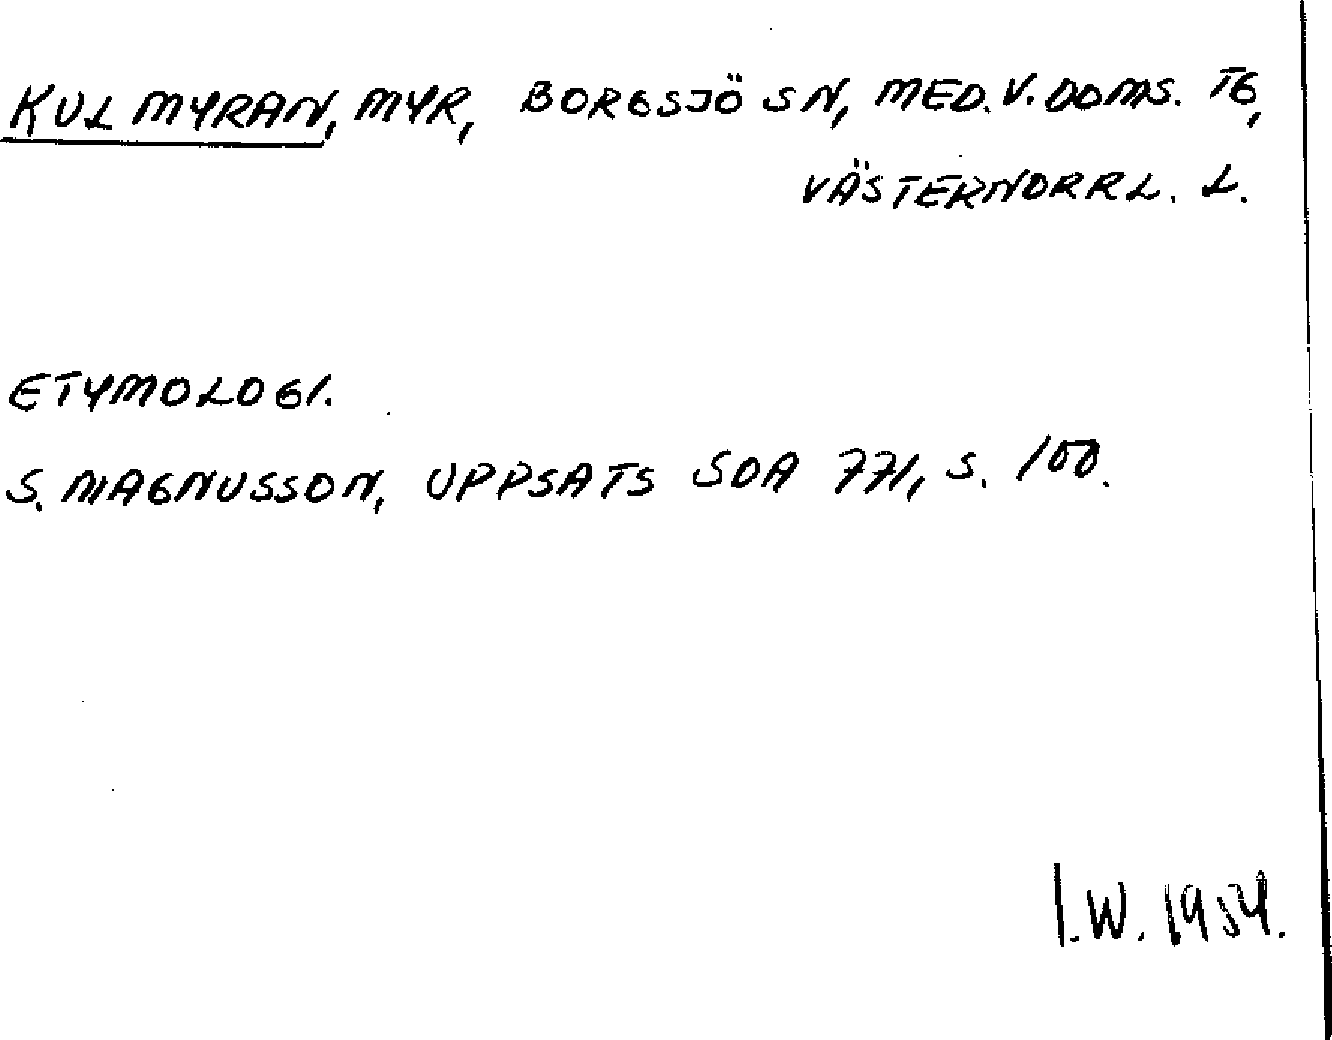 KULMYRAN, MYR, BORGSJÖ SN, MED. V. DOMS. TG,
VÄSTERNORRL. L.
ETYMOLOGI.
S. MAGNUSSON, UPPSATS SOA 771, S. 100.
I.W. 1954.